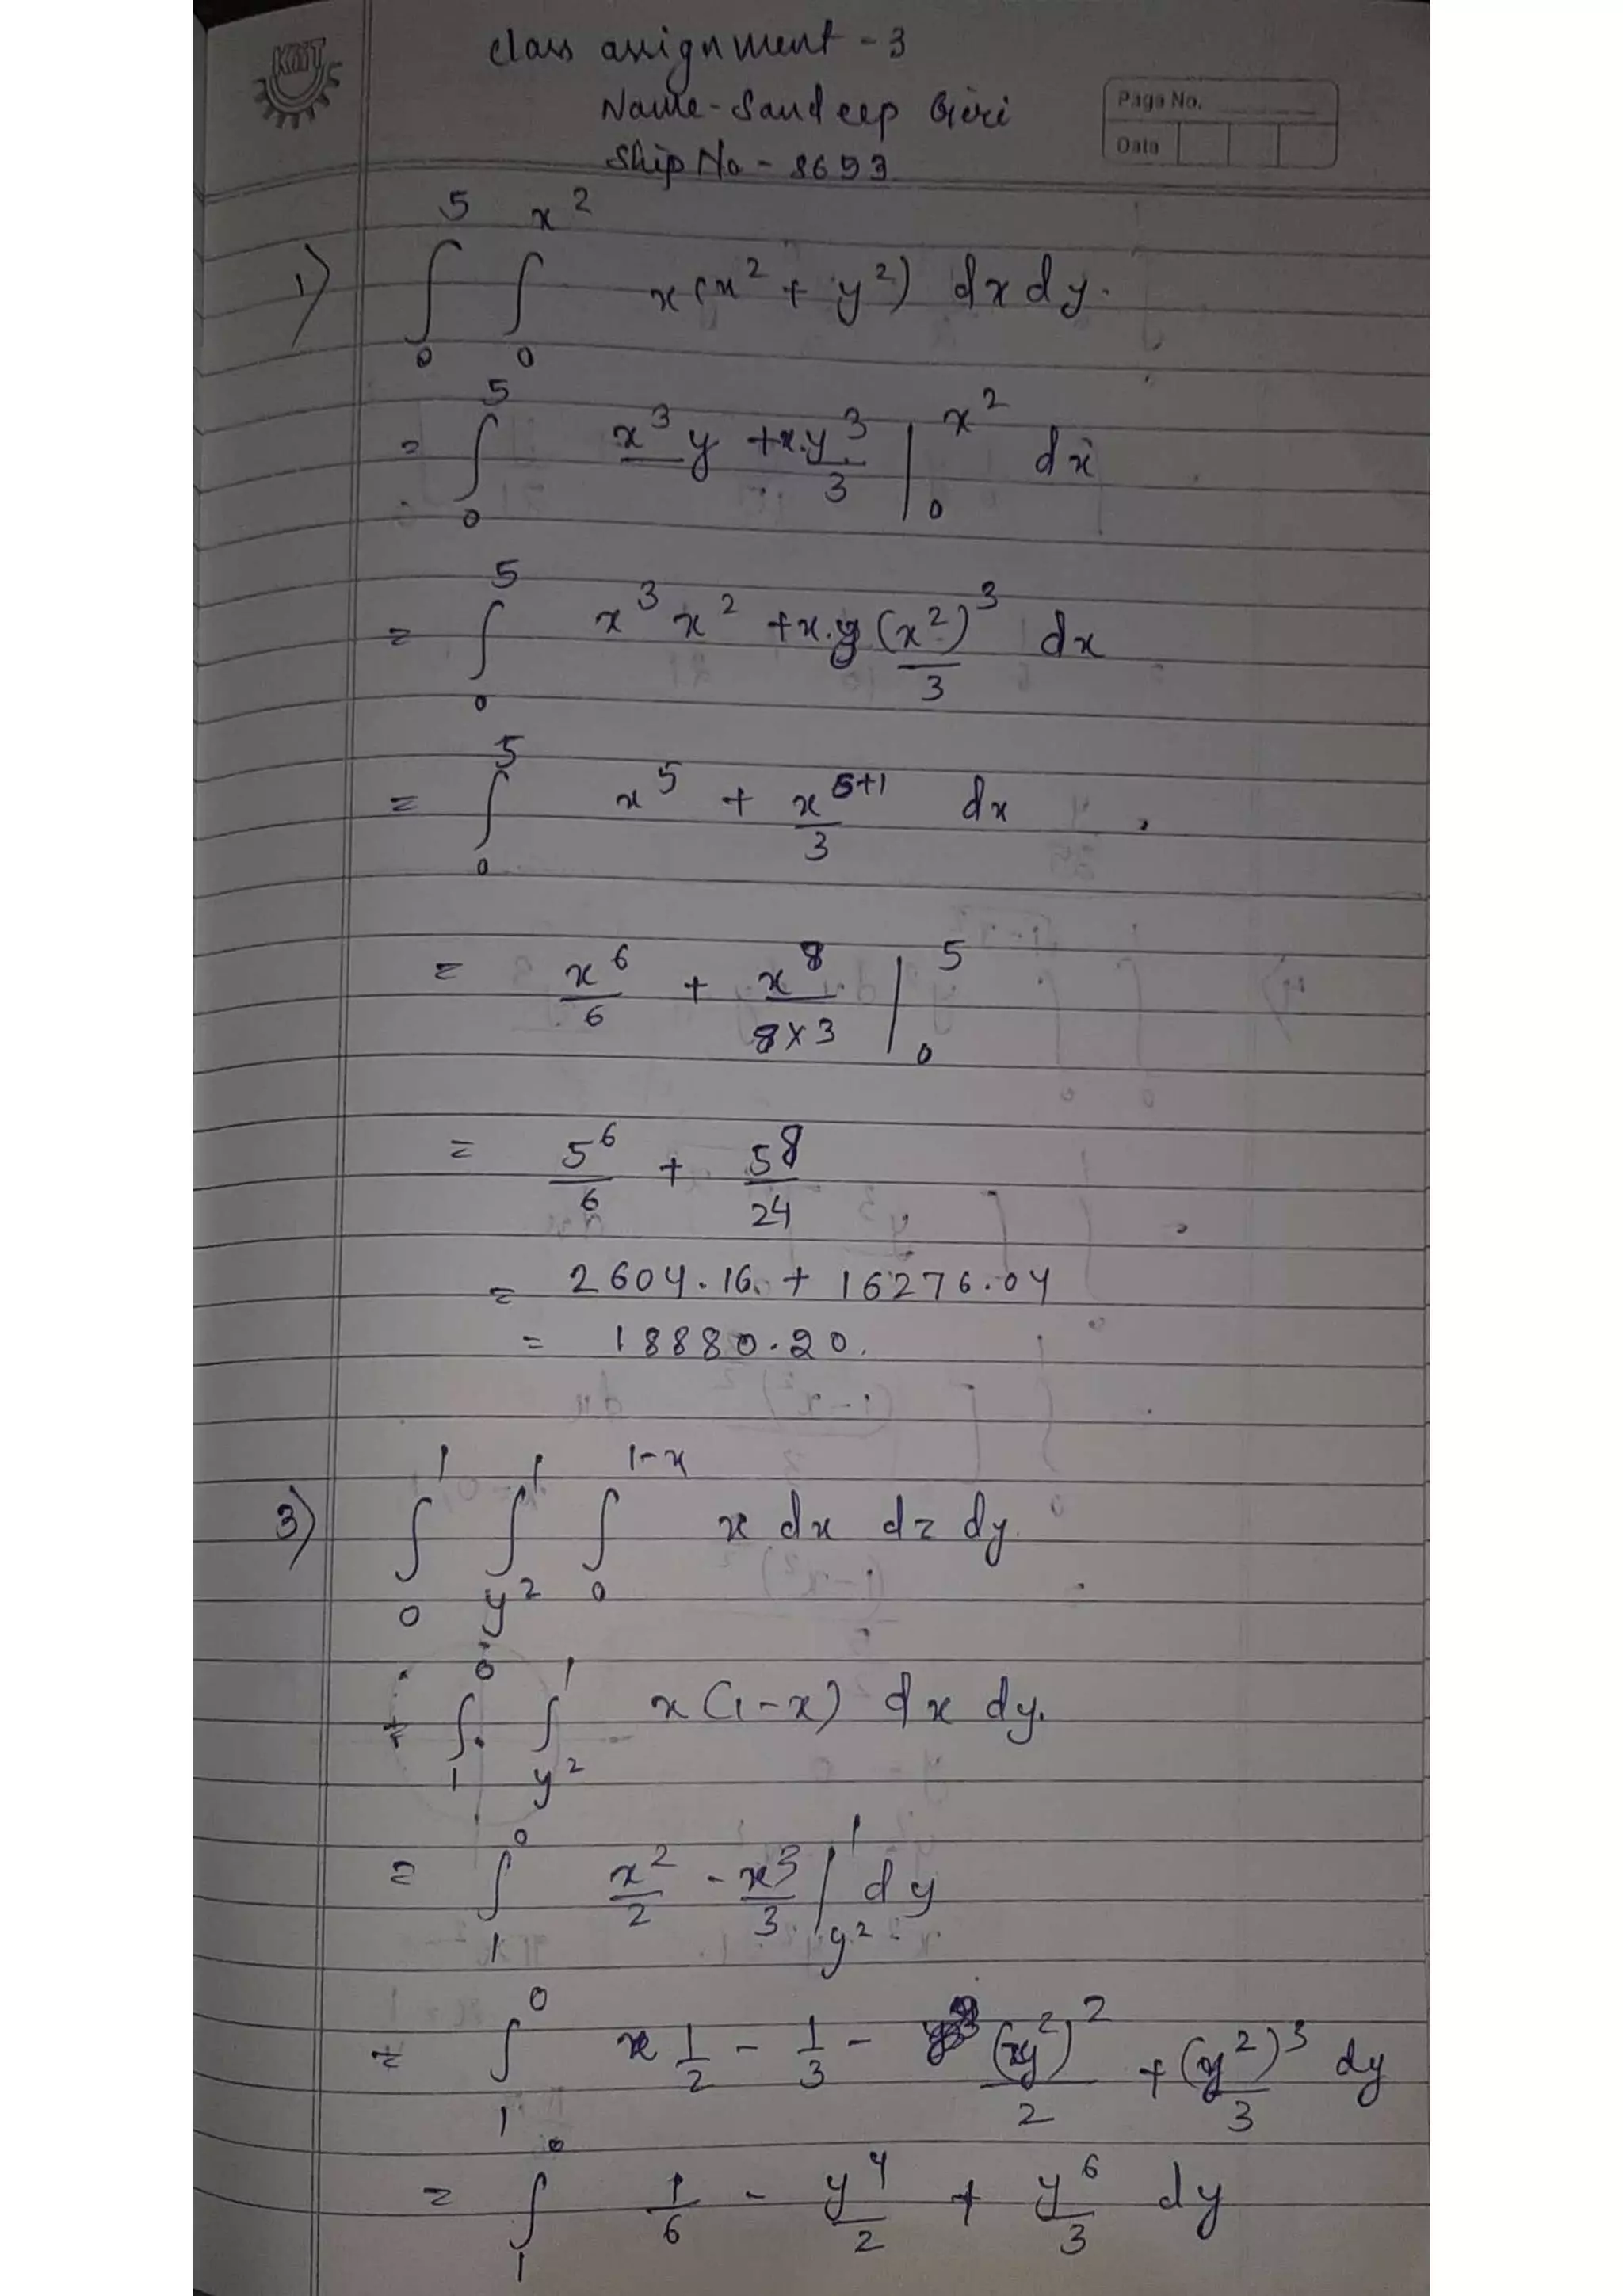 KMIT
Class assignment - 3
Name - Sandeep Giri
Ship No - 8693
Page No.
Date
1) ∫₀⁵ ∫₀^(x²) x(x² + y²) dx dy.
= ∫₀⁵ x³y + x.y³/3 |₀^(x²) dx
= ∫₀⁵ x³ x² + x.y(x²)³/3 dx
= ∫₀⁵ x⁵ + x^(6+1)/3 dx
= x⁶/6 + x⁸/(8×3) |₀⁵
= 5⁶/6 + 5⁸/24
= 2604.16 + 16276.04
= 18880.20.
3) ∫₀¹ ∫_(y²)^1 ∫₀^(1-x) x dx dz dy
= ∫₁⁰ ∫_(y²)^1 x(1-x) dx dy.
= ∫₁⁰ x²/2 - x³/3 |_(y²)^1 dy
= ∫₁⁰ 1/2 - 1/3 - (y²)²/2 + (y²)³/3 dy
= ∫₁⁰ 1/6 - y⁴/2 + y⁶/3 dy